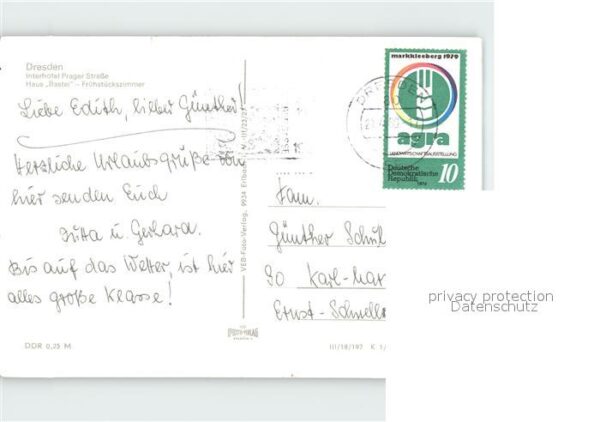 Dresden
Interhotel Prager Straße
Haus „Bastei" – Frühstückszimmer
Liebe Edith, lieber Günther!
Herzliche Urlaubsgrüße von
hier senden Euch
Jutta u. Gerhard.
Bis auf das Wetter, ist hier
alles große Klasse!
DDR 0,25 M
VEB-Foto-Verlag, 9934 Erlbac
markkleeberg 1979
agra
LANDWIRTSCHAFTSAUSSTELLUNG
Deutsche
Demokratische
Republik
10
1979
DRESDEN
80
Fam.
Günther Schul
90 Karl-Mar
Ernst-Schnell
III/18/197 K 1/
privacy protection
Datenschutz